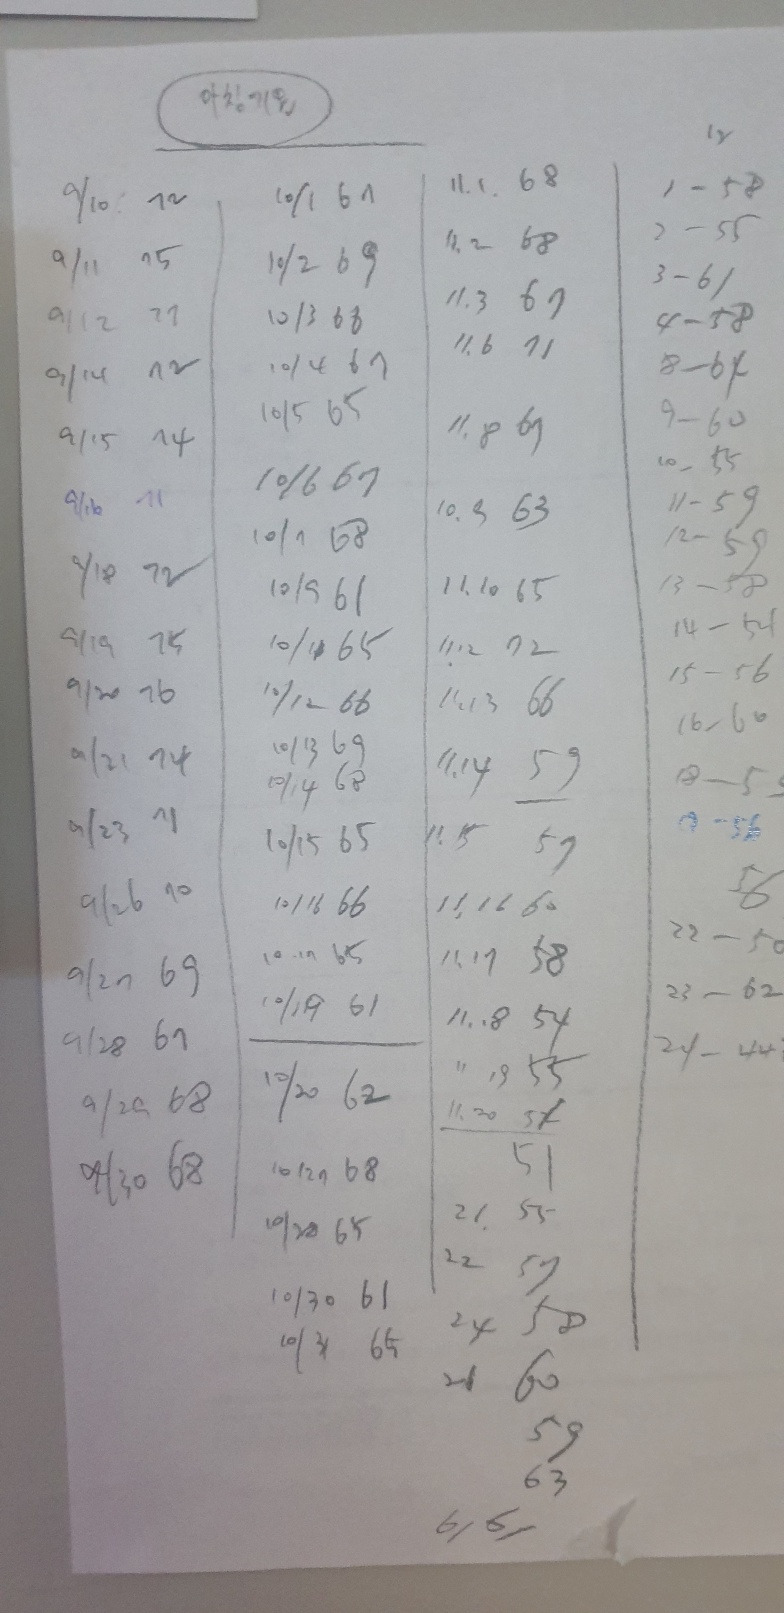 아침기온
9/10 72
9/11 75
9/12 77
9/14 72
9/15 74
9/16 71
9/18 72
9/19 75
9/20 76
9/21 74
9/23 71
9/26 70
9/27 69
9/28 67
9/29 68
9/30 68
10/1 67
10/2 69
10/3 68
10/4 67
10/5 65
10/6 67
10/7 68
10/9 61
10/11 65
10/12 66
10/13 69
10/14 68
10/15 65
10/16 66
10.17 65
10/19 61
10/20 62
10/27 68
10/28 65
10/30 61
10/31 65
11.1. 68
11.2 68
11.3 67
11.6 71
11.8 67
10.9 63
11.10 65
11.12 72
11.13 66
11.14 59
11.15 57
11.16 60
11.17 58
11.18 54
11 19 55
11.20
51
21. 55
22 57
24 58
60
59
63
61 61
12
1-58
2-55
3-61
4-58
8-64
9-60
10-55
11-59
12-59
13-58
14-54
15-56
16-60
18-55
19-56
56
22-50
23-62
24-44